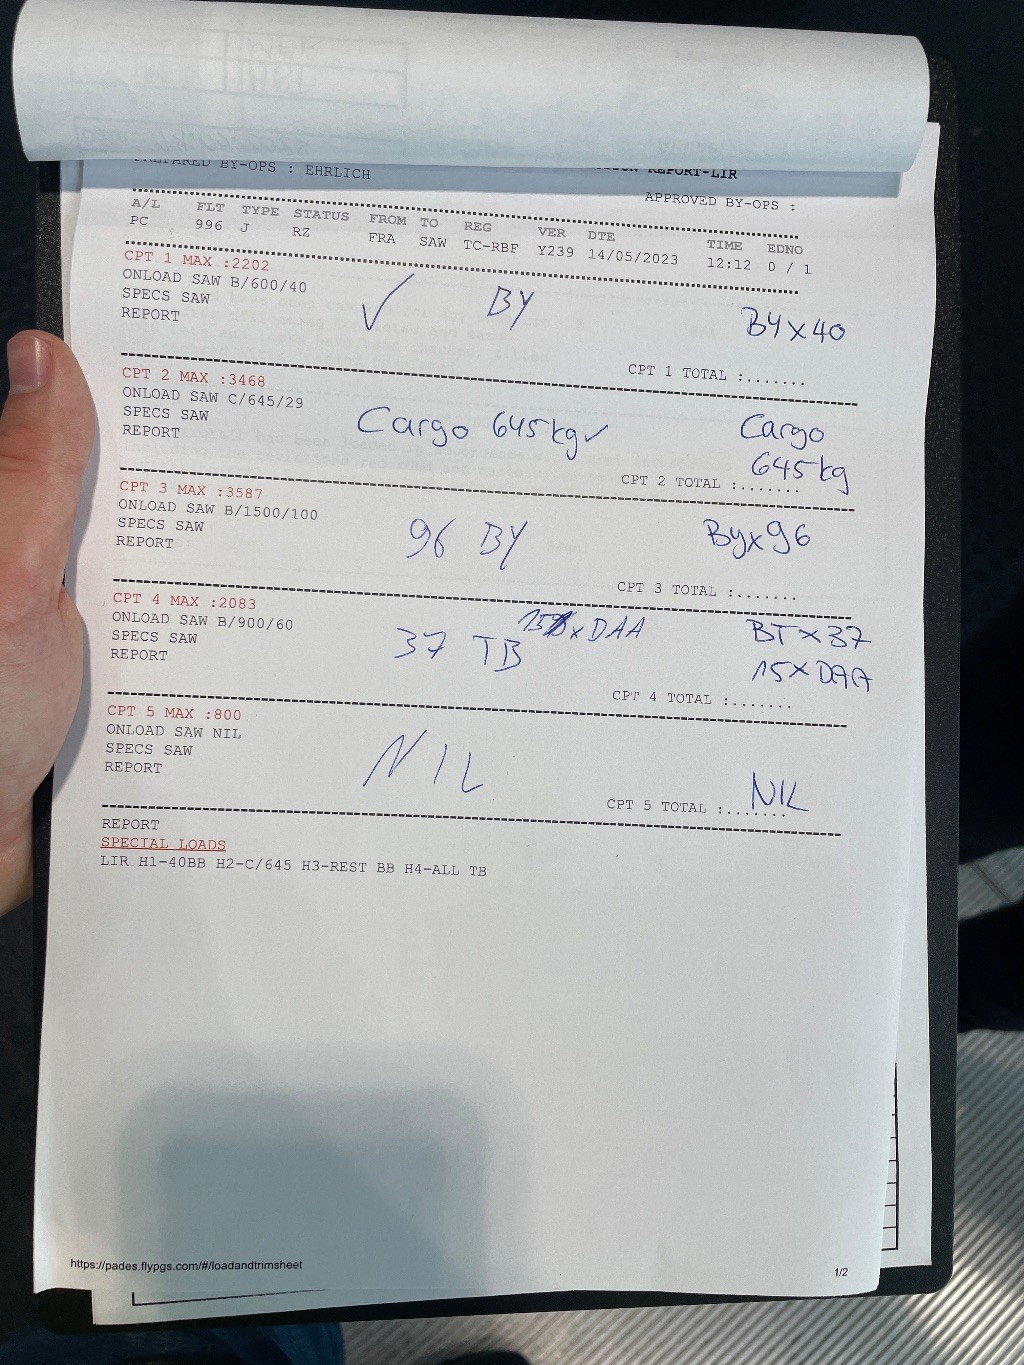 PREPARED BY-OPS : EHRLICH
REPORT-LIR
APPROVED BY-OPS :
A/L FLT TYPE STATUS FROM TO REG VER DTE TIME EDNO
PC 996 J RZ FRA SAW TC-RBF Y239 14/05/2023 12:12 0 / 1
CPT 1 MAX :2202
ONLOAD SAW B/600/40
SPECS SAW
REPORT
✓ BY
BYx40
CPT 1 TOTAL :.......
CPT 2 MAX :3468
ONLOAD SAW C/645/29
SPECS SAW
REPORT
Cargo 645kg✓
Cargo
645kg
CPT 2 TOTAL :.......
CPT 3 MAX :3587
ONLOAD SAW B/1500/100
SPECS SAW
REPORT
96 BY
Byx96
CPT 3 TOTAL :.......
CPT 4 MAX :2083
ONLOAD SAW B/900/60
SPECS SAW
REPORT
37 TB
x DAA
BTx37
15xDAA
CPT 4 TOTAL :.......
CPT 5 MAX :800
ONLOAD SAW NIL
SPECS SAW
REPORT
NIL
NIL
CPT 5 TOTAL :.......
REPORT
SPECIAL LOADS
LIR H1-40BB H2-C/645 H3-REST BB H4-ALL TB
https://pades.flypgs.com/#/loadandtrimsheet
1/2